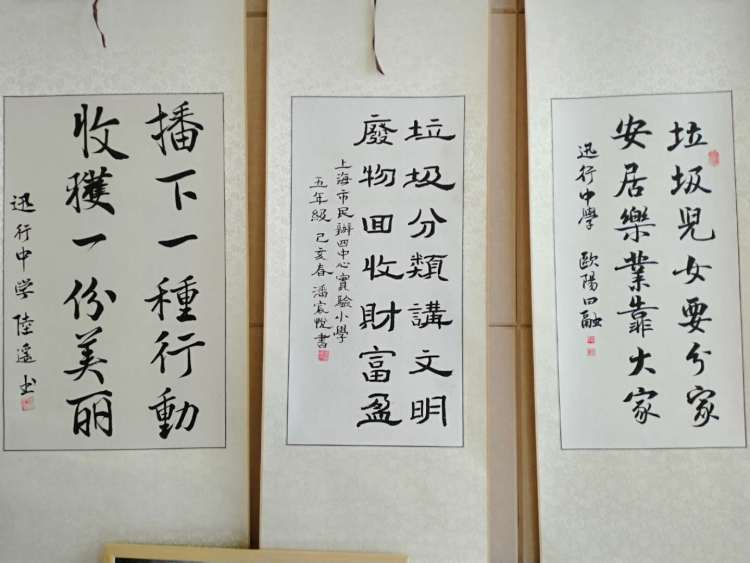 播下一種行動
收穫一份美丽
迅行中学 陸遥书
垃圾分類講文明
廢物回收財富盈
上海市民辦四中心實驗小學
五年級 己亥春 潘宸悦書
垃圾兒女要分家
安居樂業靠大家
迅行中學 歐陽口融